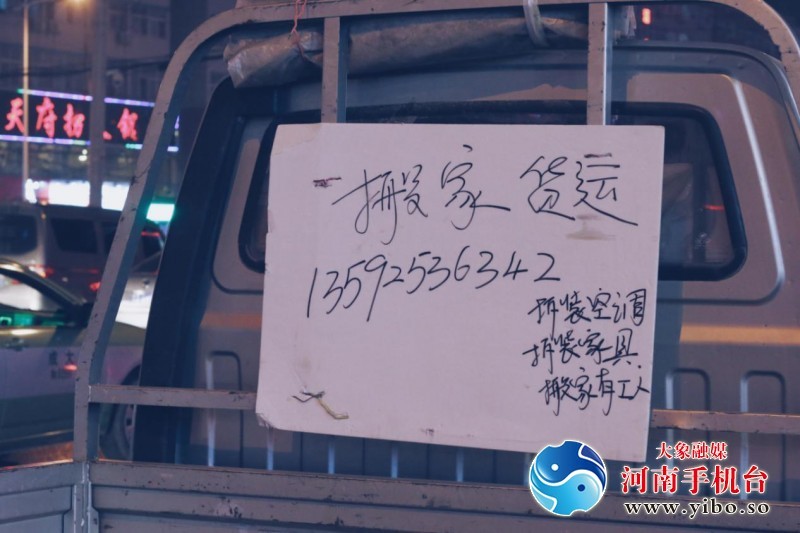 天府招
搬家 货运
13592536342
拆装空调
拆装家具
搬家有工人
大象融媒
河南手机台
www.yibo.so